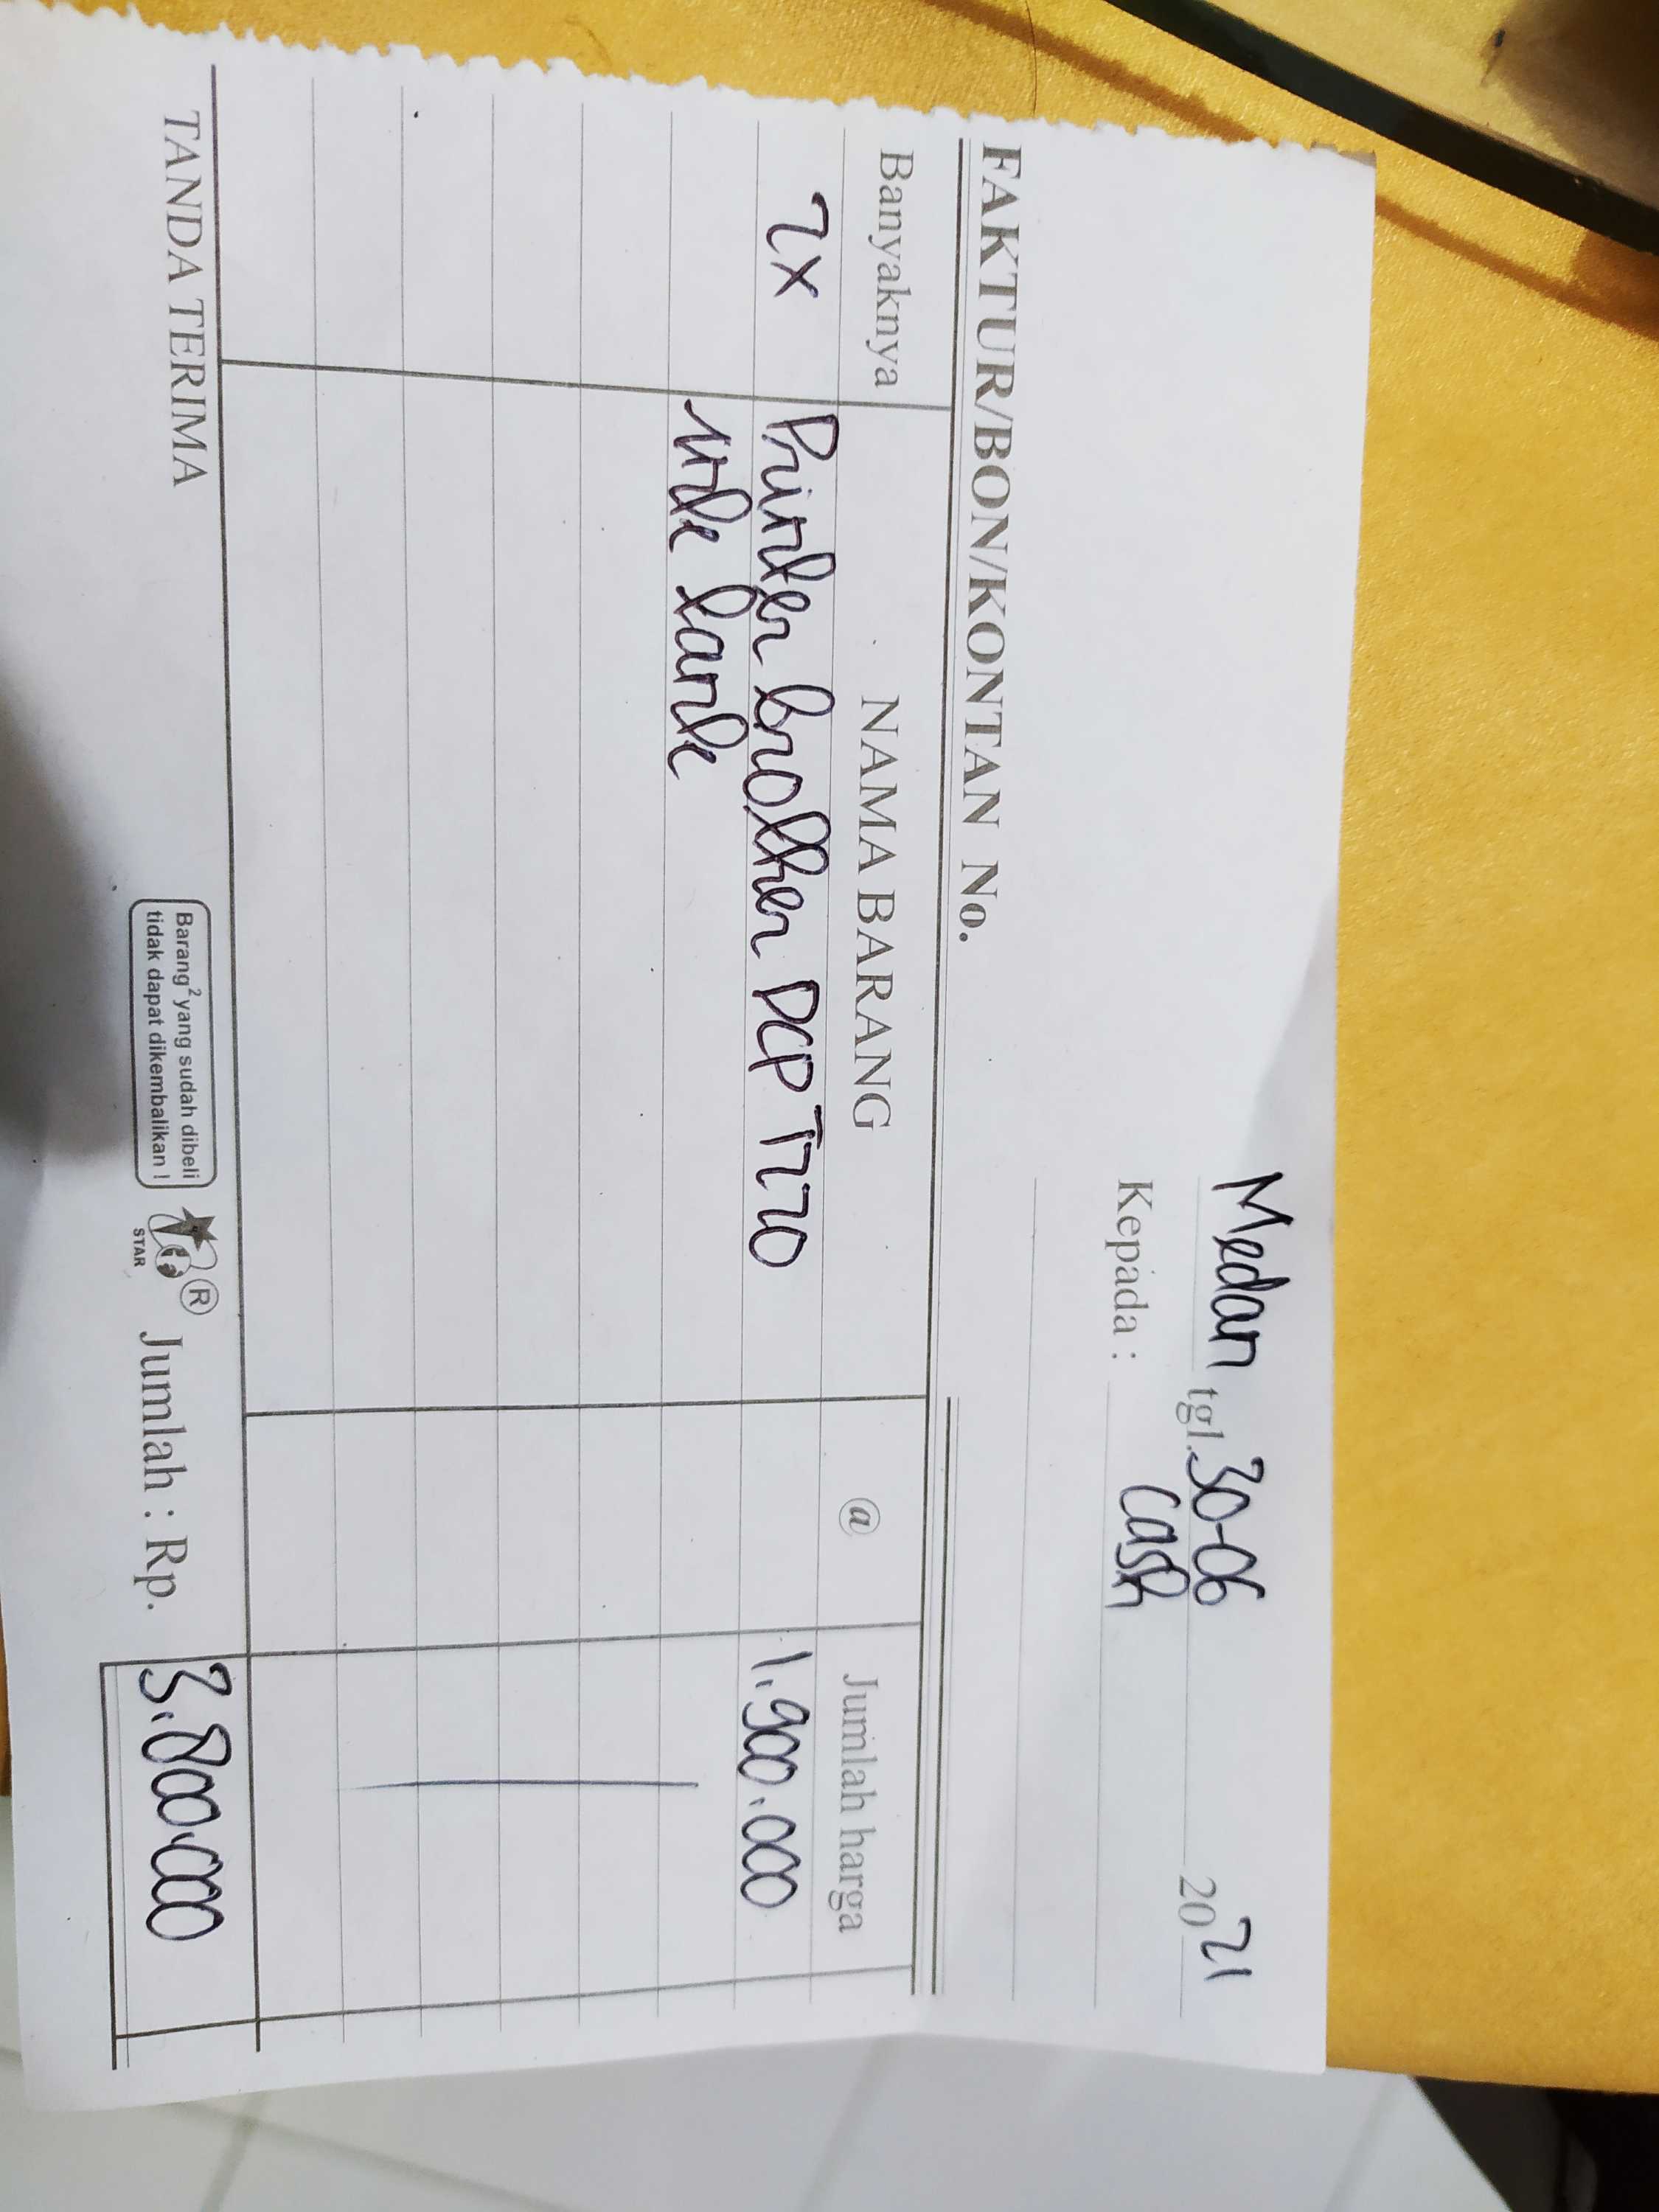 Medan tgl. 30-06 2021
Kepada : Cash
FAKTUR/BON/KONTAN No.
Banyaknya NAMA BARANG @ Jumlah harga
2x Printer brother DCP T220 1.900.000
ink tank
TANDA TERIMA
Barang² yang sudah dibeli
tidak dapat dikembalikan !
STAR
®
Jumlah : Rp. 3.800.000